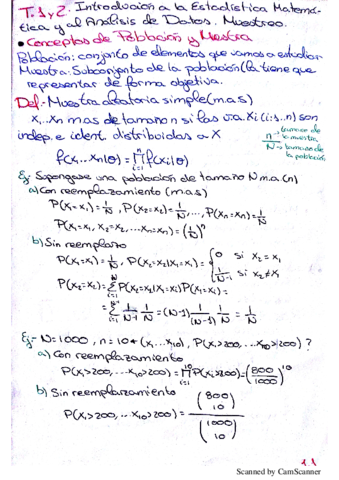 T. 1 y 2. Introducción a la Estadística Matemá-
tica y al Análisis de Datos. Muestreo.
• Conceptos de Población y Muestra
Población: conjunto de elementos que vamos a estudiar
Muestra: Subconjunto de la población (la tiene que
representar de forma objetiva.
Def- Muestra aleatoria simple (m.a.s)
X1...Xn mas de tamaño n si las v.a. Xi (i=1..n) son
indep. e ident. distribuidas a X
n → tamaño de la muestra
N → tamaño de la población
f(x1...xn|θ) = ∏(i=1, n) f(xi|θ)
Ej- Supongase una población de tamaño N m.a.(n)
a) Con reemplazamiento (m.a.s)
P(X1=x1)=1/N, P(X2=x2)=1/N, ..., P(Xn=xn)=1/N
P(X1=x1, x2=X2, ... Xn=xn) = (1/N)^n
b) Sin reemplazo
P(X1=x1)=1/N, P(X2=x2|X1=x1) = { 0 si x2=x1
1/(N-1) si x2≠x1
P(X2=x2) = Σ(i=1, N) P(X2=x2|X1=xi)P(X1=xi) =
= Σ 1/(N-1) 1/N = (N-1) 1/(N-1) 1/N = 1/N
Ej- N=1000, n=10 (X1...X10), P(X1>200, ...X10>200)?
a) Con reemplazamiento
P(X1>200, ...X10>200) = ∏(i=1, 10) P(Xi>200) = (800/1000)^10
b) Sin reemplazamiento
P(X1>200, ...X10>200) = (800 10) / (1000 10)
1.1
Scanned by CamScanner